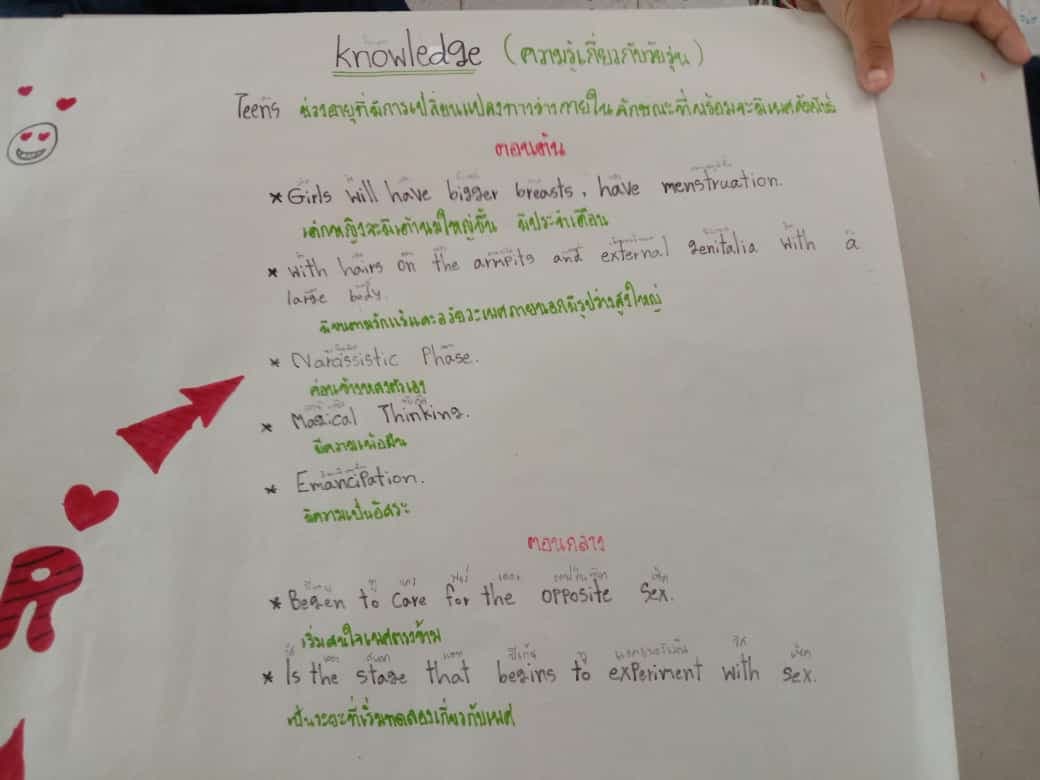 knowledge (ความรู้เกี่ยวกับวัยรุ่น)
Teens ช่วงอายุที่มีการเปลี่ยนแปลงทางร่างกายในลักษณะที่พร้อมจะมีเพศสัมพันธ์
ตอนต้น
* Girls will have bigger breasts, have menstruation.
เด็กหญิงจะมีเต้านมใหญ่ขึ้น มีประจำเดือน
* with hairs on the armpits and external genitalia with a
large body.
มีขนตามรักแร้และอวัยวะเพศภายนอกมีรูปร่างสูงใหญ่
* Narassistic Phase.
ค่อนข้างหลงตัวเอง
* Magical Thinking.
มีความเพ้อฝัน
* Emancipation.
มีความเป็นอิสระ
ตอนกลาง
* Begen to care for the opposite sex.
เริ่มสนใจเพศตรงข้าม
* Is the stage that begins to experiment with sex.
เป็นระยะที่เริ่มทดลองเกี่ยวกับเพศ
R